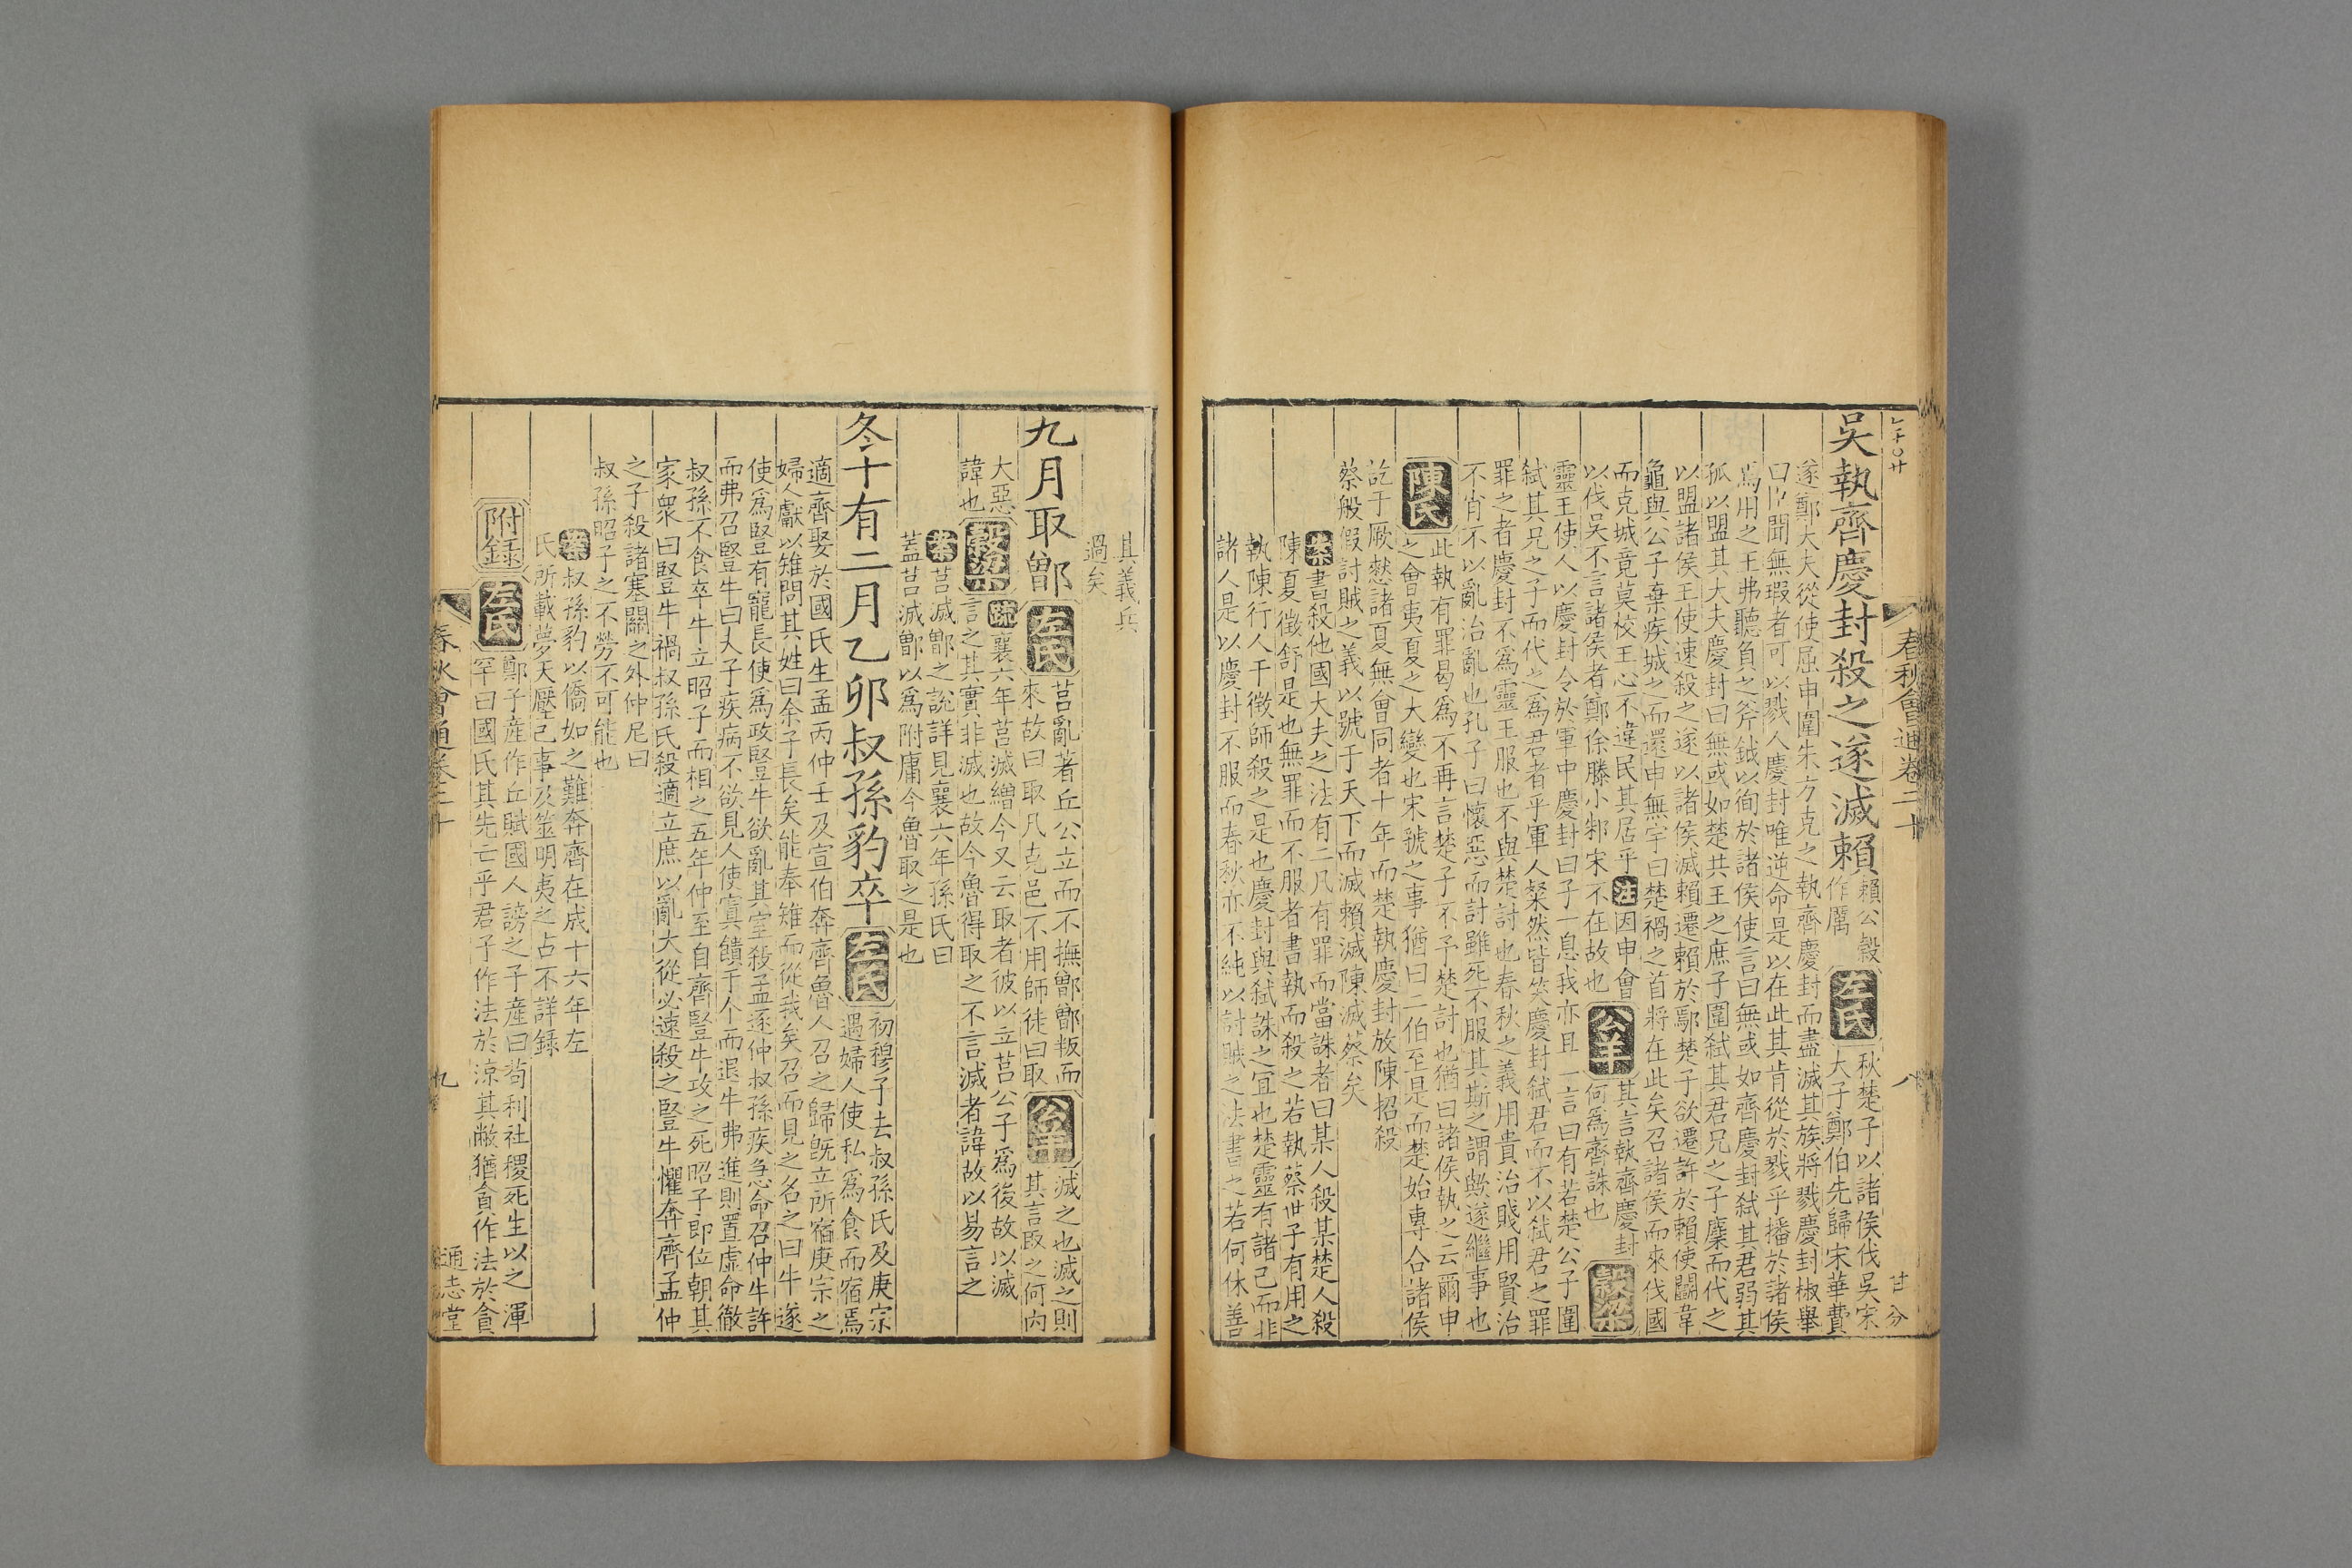 春秋會通卷二十
八
吳執齊慶封殺之遂滅賴
賴公穀
作厲
左氏
秋楚子以諸侯伐吳宋
大子鄭伯先歸宋華費
遂鄭大夫從使屈申圍朱方克之執齊慶封而盡滅其族將戮慶封椒舉
曰臣聞無瑕者可以戮人慶封唯逆命是以在此其肯從於戮乎播於諸侯
焉用之王弗聽負之斧鉞以徇於諸侯使言曰無或如齊慶封弒其君弱其
孤以盟其大夫慶封曰無或如楚共王之庶子圍弒其君兄之子麇而代之
以盟諸侯王使速殺之遂以諸侯滅賴遷賴於鄢楚子欲遷許於賴使鬭韋
龜與公子棄疾城之而還申無宇曰楚禍之首將在此矣召諸侯而來伐國
而克城竟莫校王心不違民其居乎注因申會
以伐吳不言諸侯者鄭徐滕小邾宋不在故也
公羊
其言執齊慶封
何爲齊誅也
穀梁
靈王使人以慶封令於軍中慶封曰子一息我亦且一言曰有若楚公子圍
弒其兄之子而代之爲君者乎軍人粲然皆笑慶封弒君而不以弒君之罪
罪之者慶封不爲靈王服也不與楚討也春秋之義用貴治賤用賢治
不肖不以亂治亂也孔子曰懷惡而討雖死不服其斯之謂與遂繼事也
陳氏
此執有罪曷爲不再言楚子不予楚討也猶曰諸侯執之云爾申
之會夷夏之大變也宋虢之事猶曰二伯至是而楚始專合諸侯
訖于厥憖諸夏無會同者十年而楚執慶封放陳招殺
蔡般假討賊之義以號于天下而滅賴滅陳滅蔡矣
案書殺他國大夫之法有二凡有罪而當誅者曰某人殺某楚人殺
陳夏徵舒是也無罪而不服者書執而殺之若執蔡世子有用之
執陳行人干徵師殺之是也慶封與弒誅之宜也楚靈有諸己而非
諸人是以慶封不服而春秋亦不純以討賊之法書之若何休善
其義兵
過矣
九月取鄫
左氏
莒亂著丘公立而不撫鄫鄫叛而
來故曰取凡克邑不用師徒曰取
公羊
滅之也滅之則
其言取之何內
大惡
諱也
穀梁
疏襄六年莒滅繒今又云取者彼以立莒公子爲後故以滅
言之其實非滅也故今魯得取之不言滅者諱故以易言之
案莒滅鄫之說詳見襄六年孫氏曰
蓋莒滅鄫以爲附庸今魯取之是也
冬十有二月乙卯叔孫豹卒
左氏
初穆子去叔孫氏及庚宗
遇婦人使私爲食而宿焉
適齊娶於國氏生孟丙仲壬及宣伯奔齊魯人召之歸旣立所宿庚宗之
婦人獻以雉問其姓曰余子長矣能奉雉而從我矣召而見之名之曰牛遂
使爲豎有寵長使爲政豎牛欲亂其室殺孟逐仲叔孫疾急命召仲牛許
而弗召豎牛曰夫子疾病不欲見人使寘饋于个而退牛弗進則置虛命徹
叔孫不食卒牛立昭子而相之五年仲至自齊豎牛攻之死昭子卽位朝其
家衆曰豎牛禍叔孫氏殺適立庶以亂大從必速殺之豎牛懼奔齊孟仲
之子殺諸塞關之外仲尼曰
叔孫昭子之不勞不可能也
案叔孫豹以僑如之難奔齊在成十六年左
氏所載夢天壓己事及筮明夷之占不詳錄
附錄
左氏
鄭子產作丘賦國人謗之子產曰苟利社稷死生以之渾
罕曰國氏其先亡乎君子作法於涼其敝猶貪作法於貪
春秋會通卷二十
九
通志堂